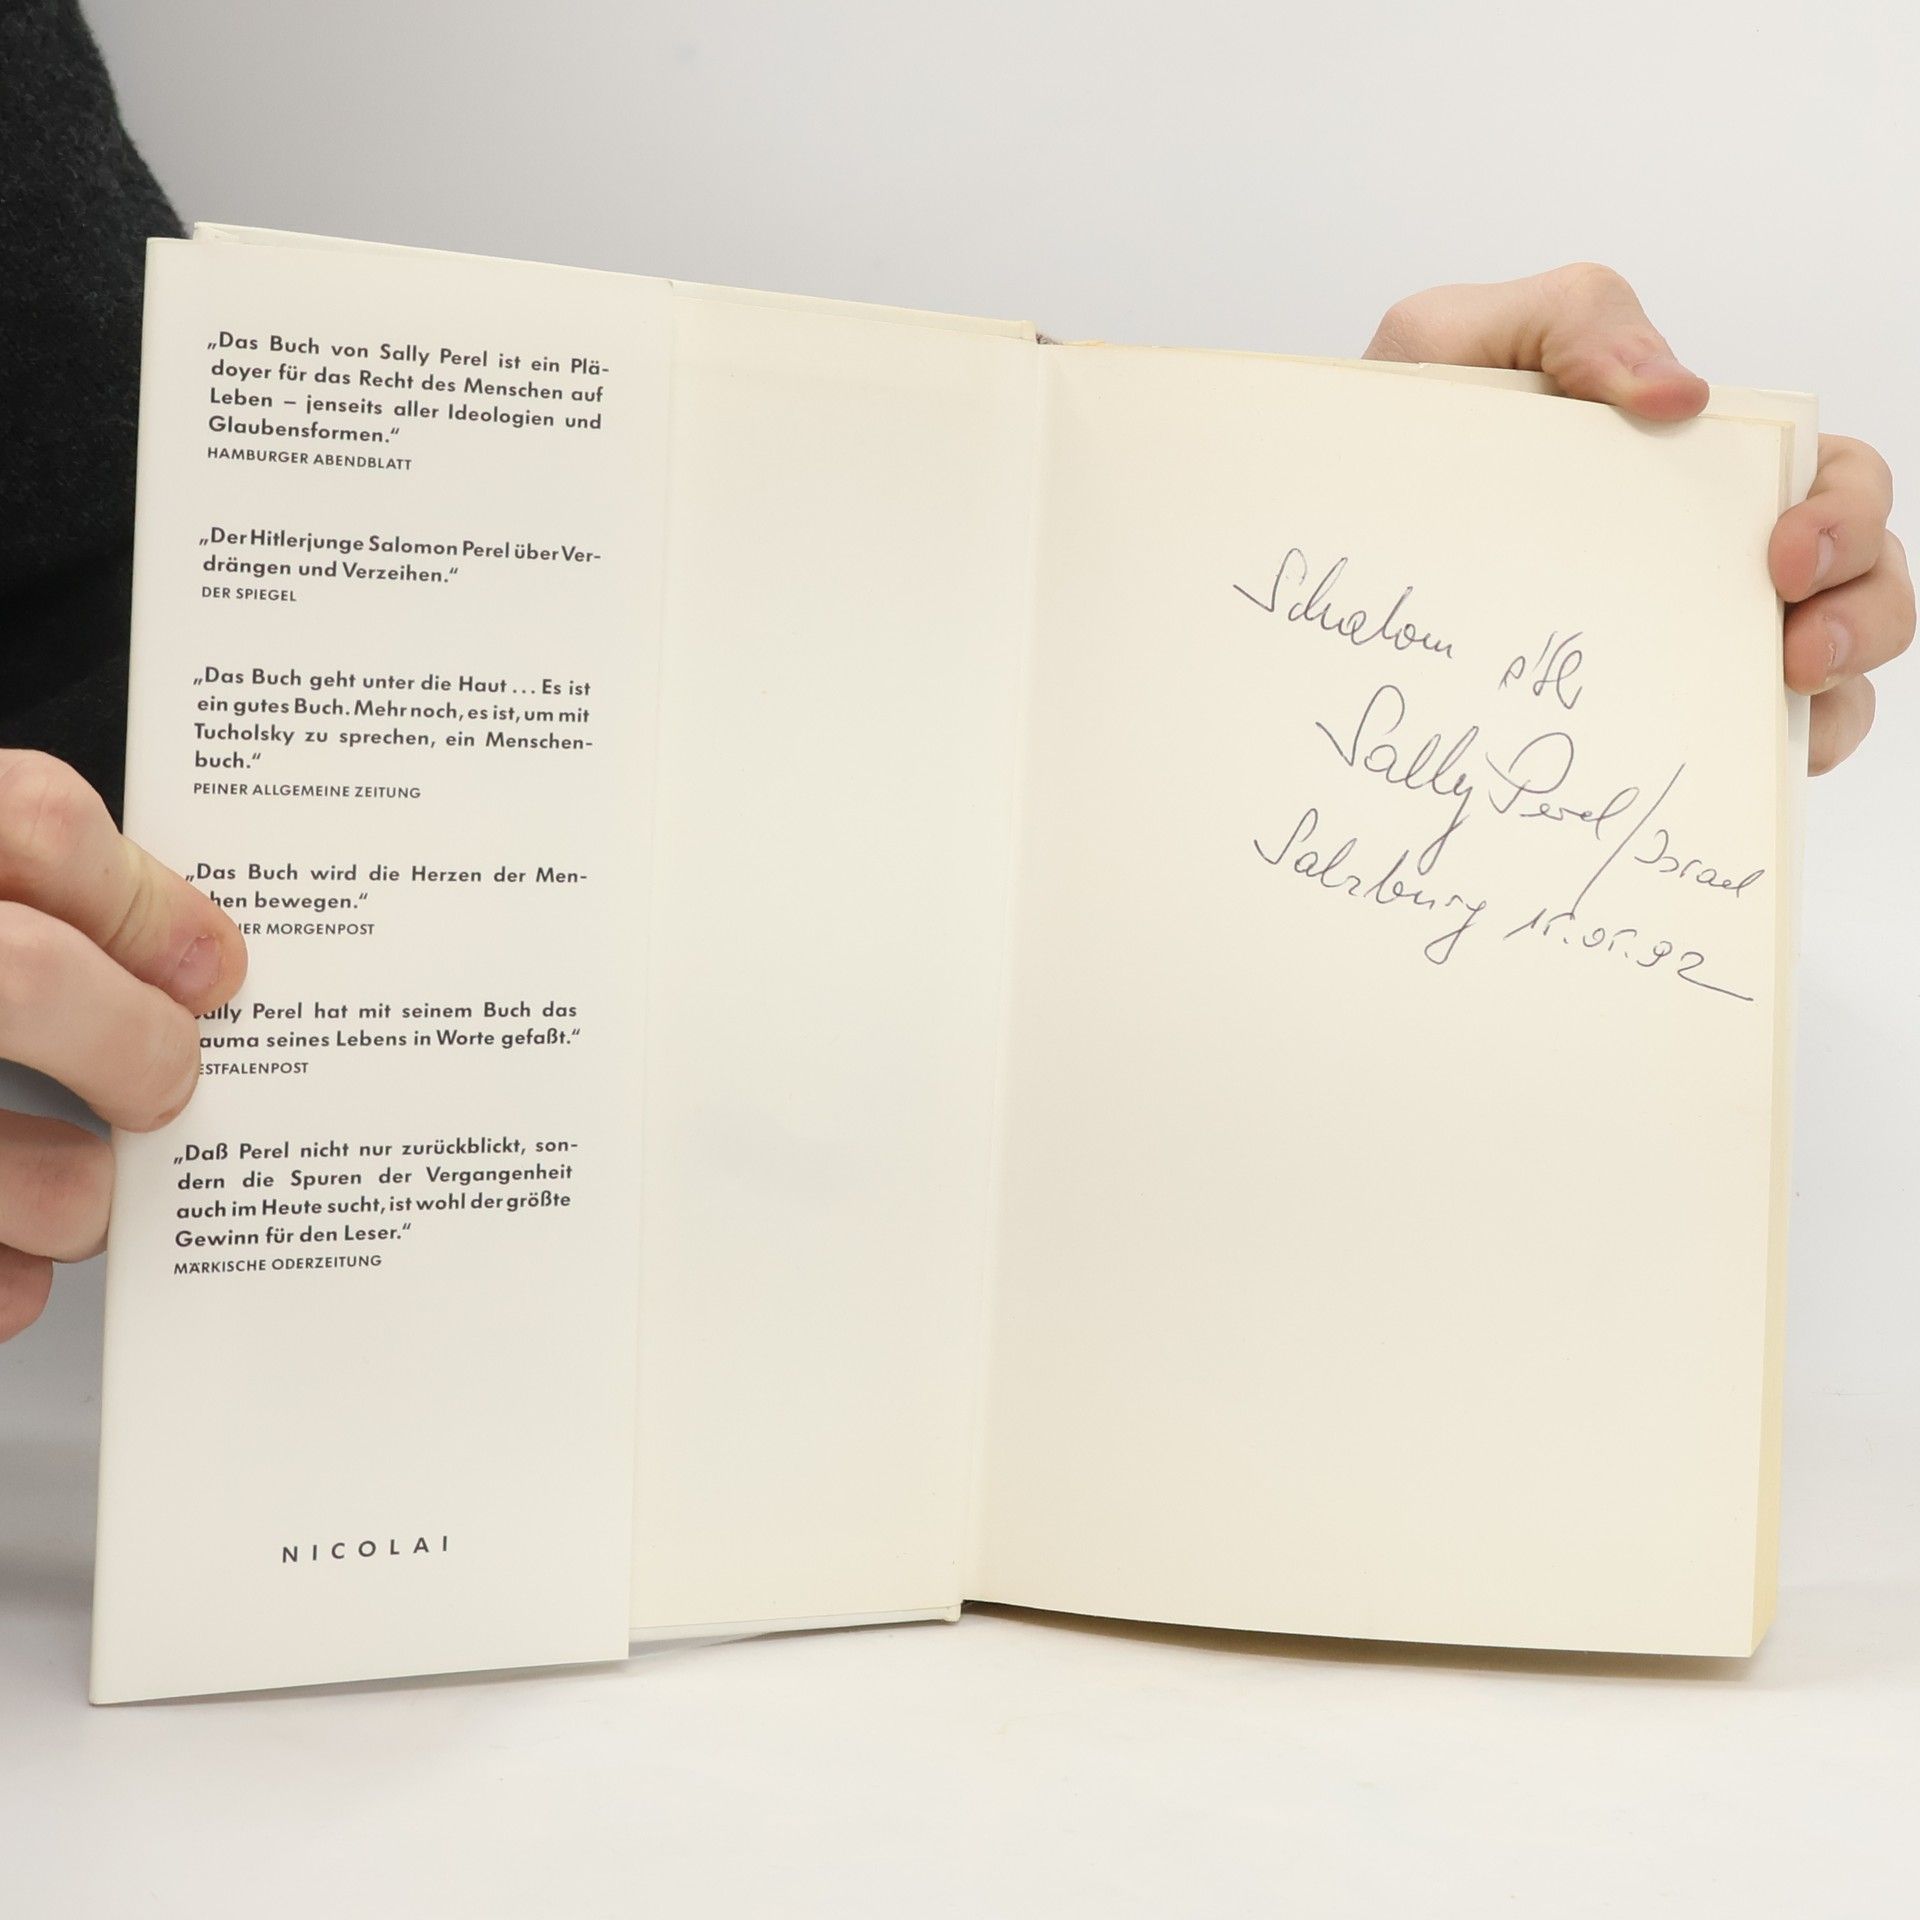 „Das Buch von Sally Perel ist ein Plä-
doyer für das Recht des Menschen auf
Leben – jenseits aller Ideologien und
Glaubensformen.“
HAMBURGER ABENDBLATT
„Der Hitlerjunge Salomon Perel über Ver-
drängen und Verzeihen.“
DER SPIEGEL
„Das Buch geht unter die Haut ... Es ist
ein gutes Buch. Mehr noch, es ist, um mit
Tucholsky zu sprechen, ein Menschen-
buch.“
PEINER ALLGEMEINE ZEITUNG
„Das Buch wird die Herzen der Men-
hen bewegen.“
MORGENPOST
Perel hat mit seinem Buch das
auma seines Lebens in Worte gefaßt.“
ESTFALENPOST
„Daß Perel nicht nur zurückblickt, son-
dern die Spuren der Vergangenheit
auch im Heute sucht, ist wohl der größte
Gewinn für den Leser.“
MÄRKISCHE ODERZEITUNG
NICOLAI
Schalom שלום
Sally Perel/Israel
Salzburg 15.05.92